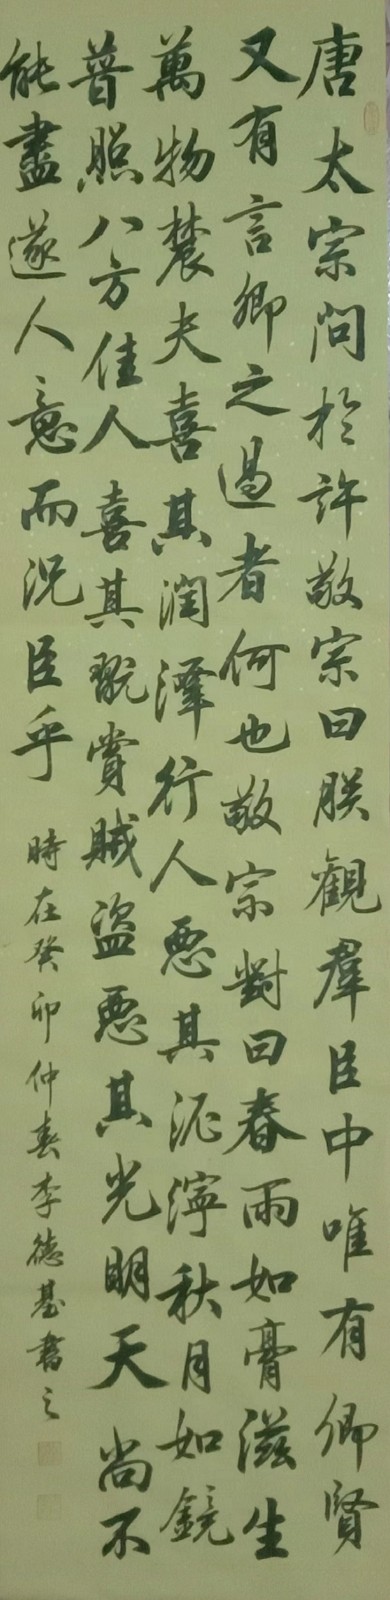 唐太宗問於許敬宗曰朕觀羣臣中唯有卿賢
又有言卿之過者何也敬宗對曰春雨如膏滋生
萬物農夫喜其潤澤行人惡其泥濘秋月如鏡
普照八方佳人喜其翫賞賊盜惡其光明天尚不
能盡遂人意而況臣乎
時在癸卯仲春李德基書之